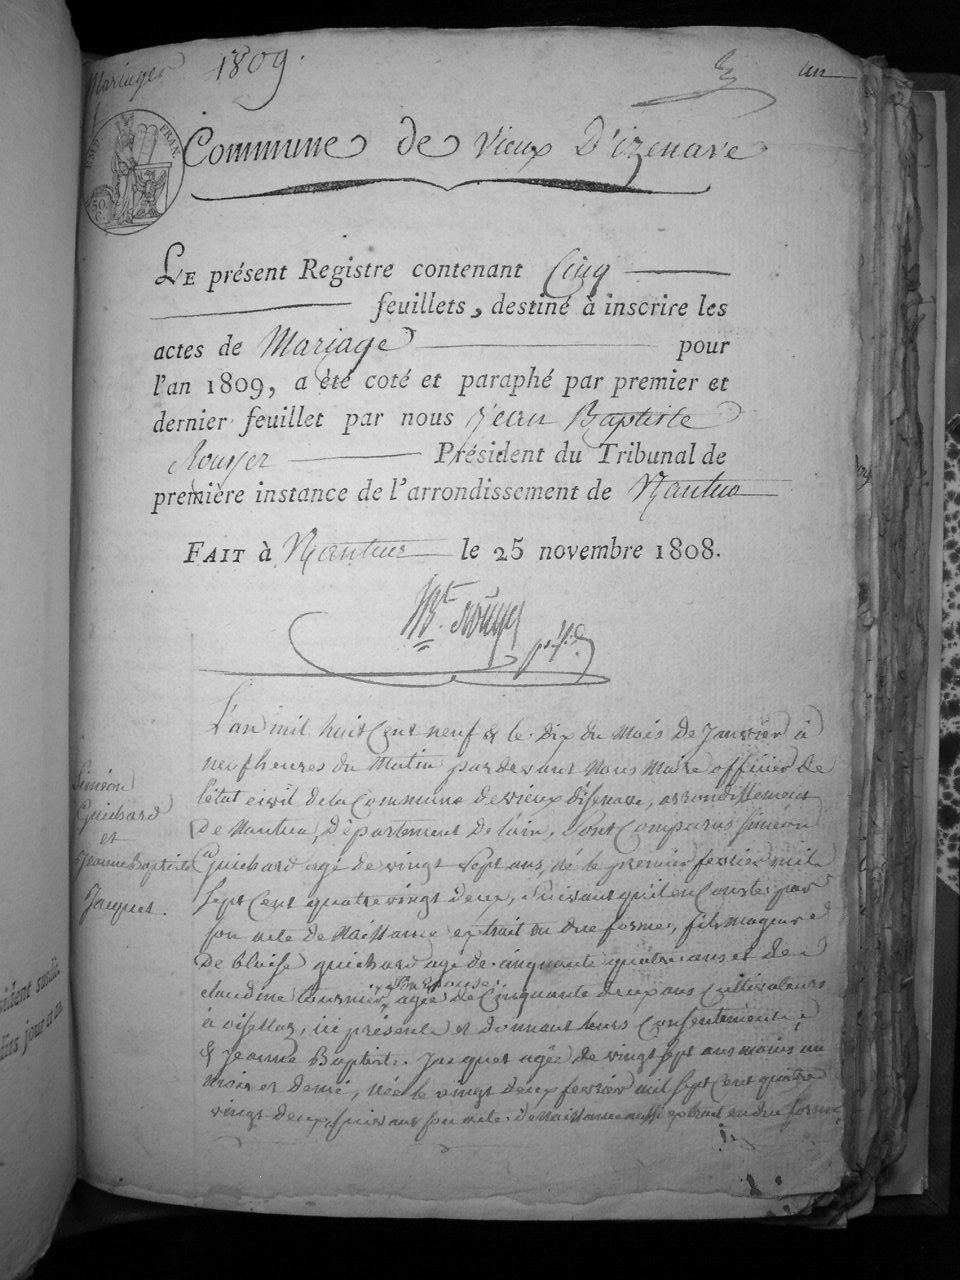 Mariages 1809. un
Commune de Vieux D'izenave
LE présent Registre contenant Cinq
feuillets, destiné à inscrire les
actes de Mariage pour
l'an 1809, a été coté et paraphé par premier et
dernier feuillet par nous Jean Baptiste
Rouyer Président du Tribunal de
première instance de l'arrondissement de Nantua
FAIT à Nantua le 25 novembre 1808.
L'an mil huit Cent neuf & le dix du Mois de Janvier à
neuf heures du Matin pardevant Nous Maire officier de
l'état civil de la Commune de vieux d'isenave, arrondissement
De Nantua, Département de lain, Sont Comparus Siméon
Guichard agé de vingt Sept ans, né le premier fevrier mil
Sept Cent quatre vingt deux, Suivant qu'il en Conste par
Son acte de Naissance extrait en due forme, fils majeur
De blaise guichard agé de cinquante quatre ans et de
claudine tournier son Epouse agée de Cinquante deux ans Cultivateurs
à oissellaz, ici présents et donnant leurs Consentements
& Jeanne Baptiste Jacquet agée de vingt Sept ans moins un
mois et demi, née le vingt deux fevrier mil Sept Cent quatre
vingt deux, Suivant Son acte de Naissance aussi extrait en due forme
Siméon
Guichard
et
Jeanne Baptiste
Jacquet.